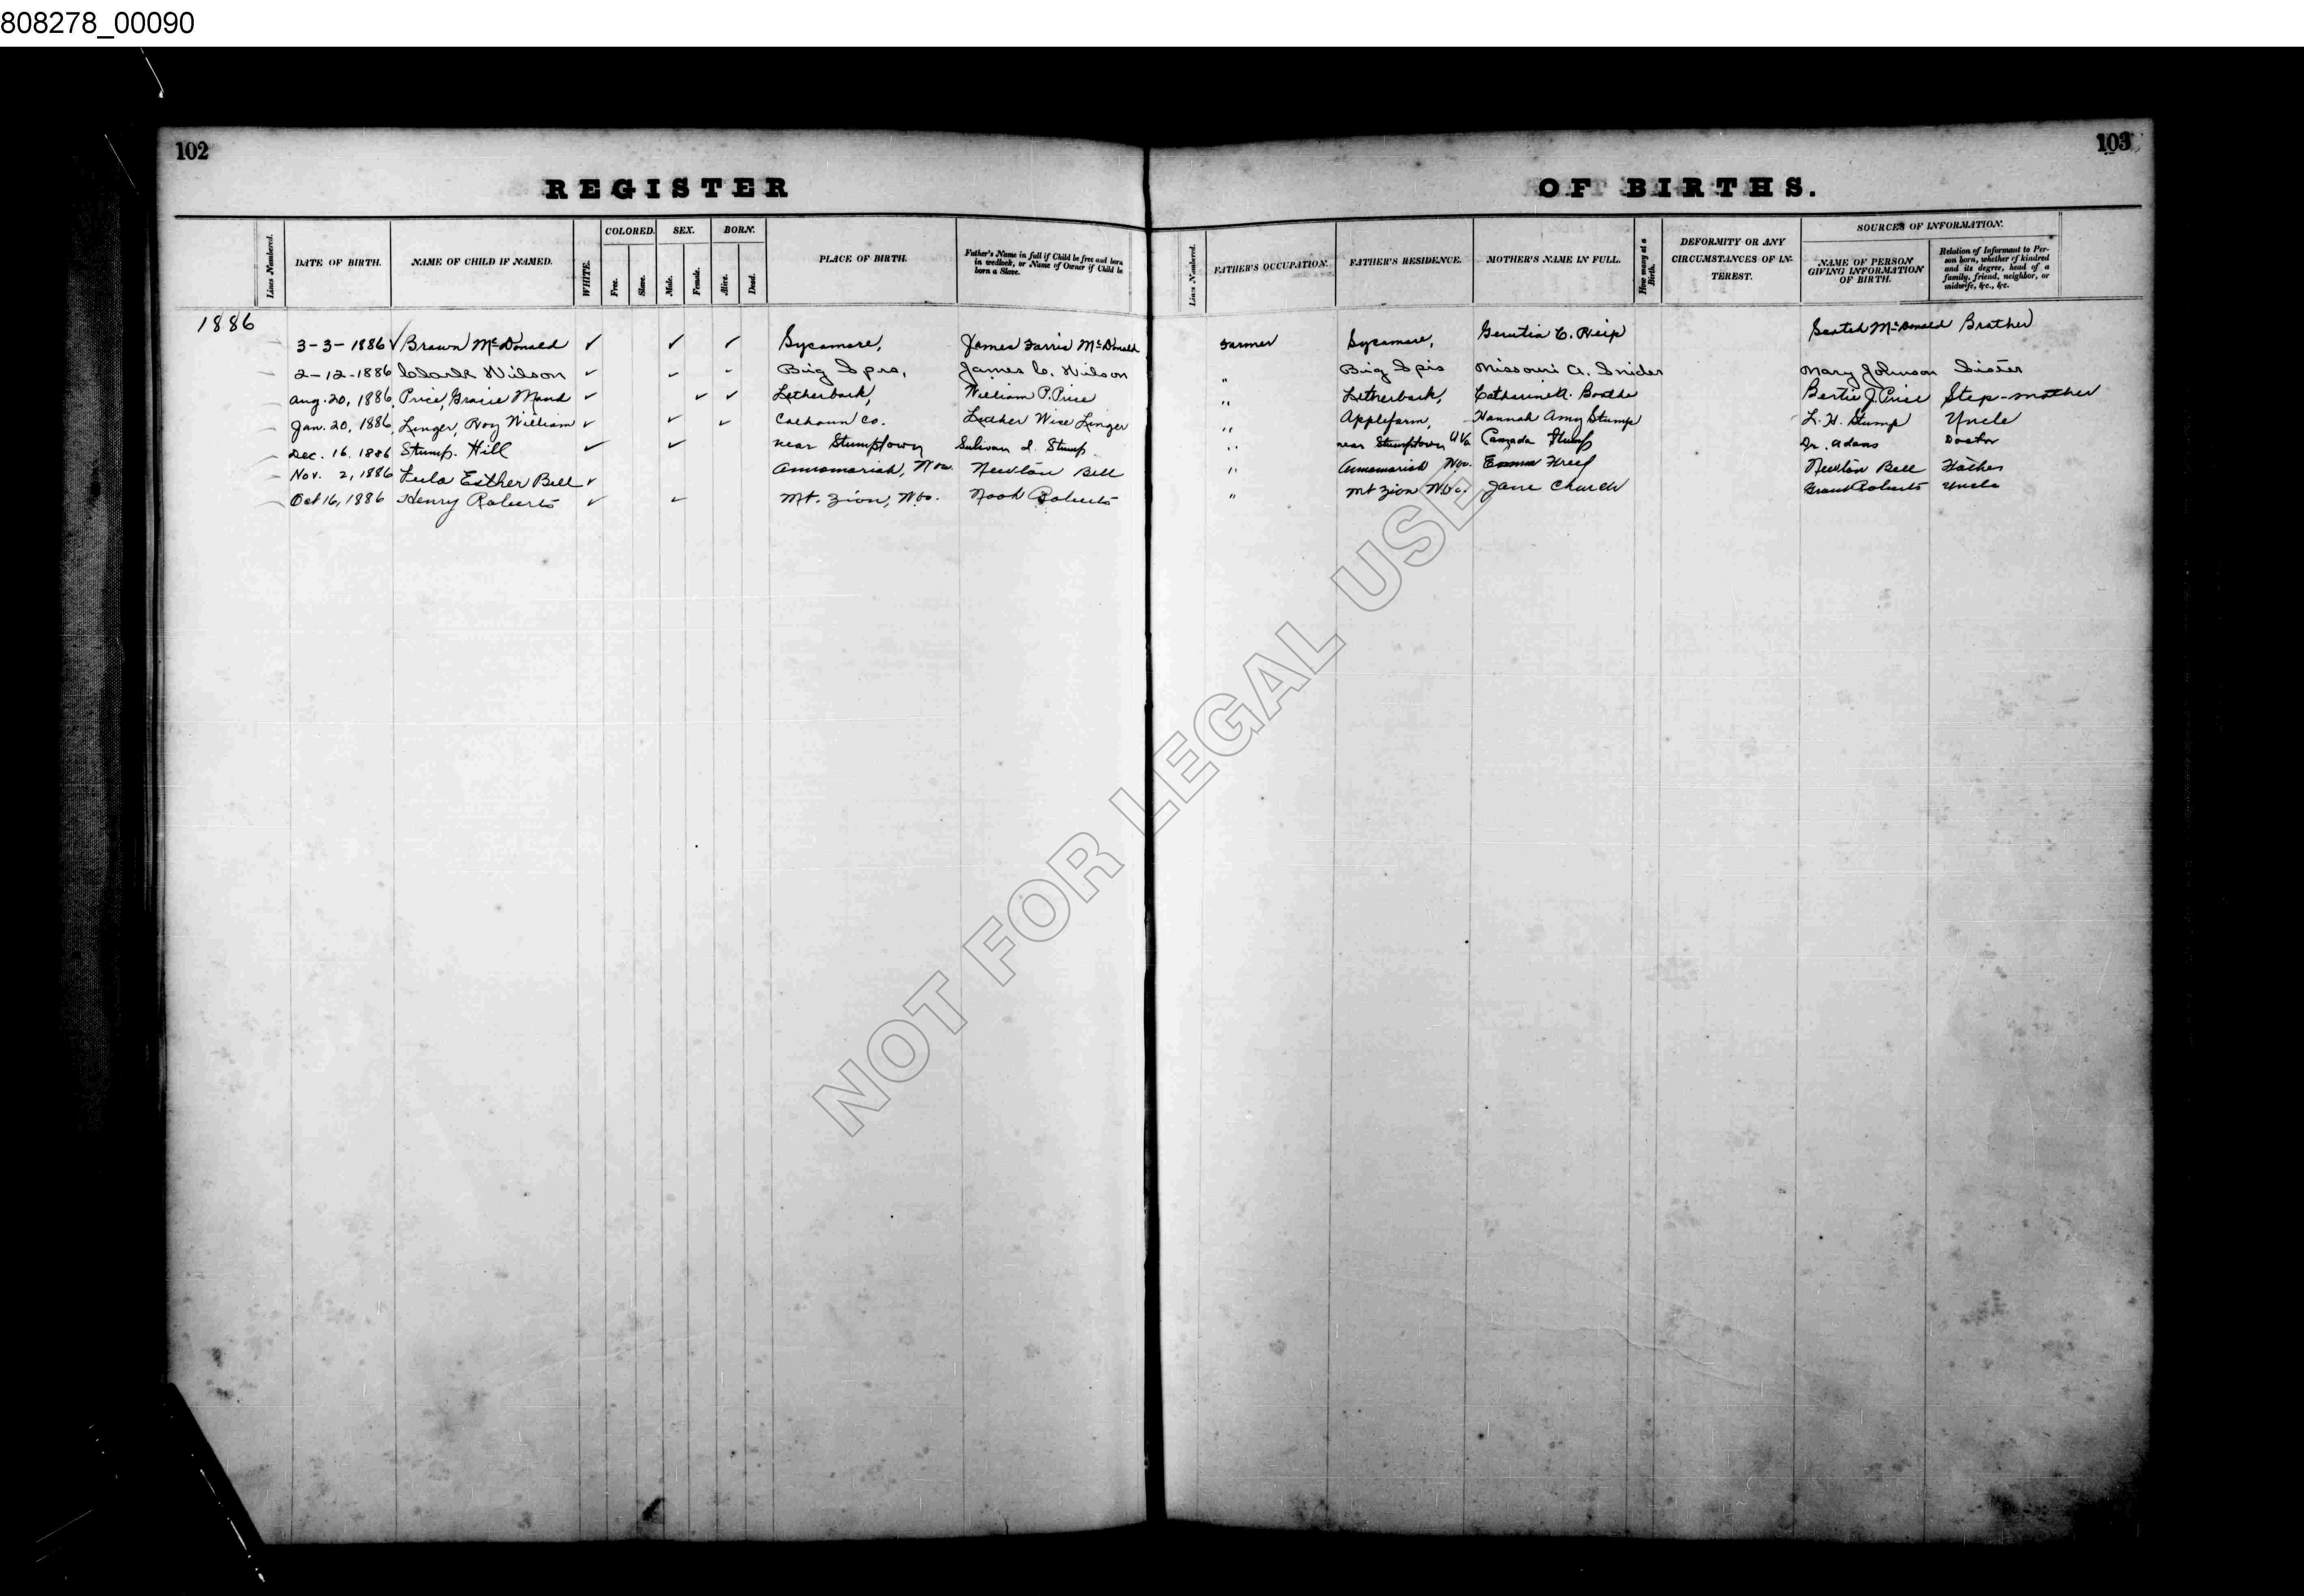 808278_00090
102
103
REGISTER OF BIRTHS.
Lines Numbered. DATE OF BIRTH. NAME OF CHILD IF NAMED. WHITE. COLORED. Free. Slave. SEX. Male. Female. BORN. Alive. Dead. PLACE OF BIRTH. Father's Name in full if Child be free and born in wedlock, or Name of Owner if Child be born a Slave. Lines Numbered. FATHER'S OCCUPATION. FATHER'S RESIDENCE. MOTHER'S NAME IN FULL. How many at a Birth. DEFORMITY OR ANY CIRCUMSTANCES OF INTEREST. SOURCES OF INFORMATION. NAME OF PERSON GIVING INFORMATION OF BIRTH. Relation of Informant to Person born, whether of kindred and its degree, head of a family, friend, neighbor, or midwife, &c., &c.
1886
3-3-1886 ✓ Brown McDonald ✓ ✓ ✓ Sycamore, James Farris McDonald Farmer Sycamore, C. McDonald Brother
2-12-1886 Clark Wilson ✓ ✓ ✓ Big Sprs, James C. Wilson " Big Sprs Missouri A. Snider Mary Johnson Sister
Aug. 20, 1886, Price, Gracie Maud ✓ ✓ ✓ Letherbark, William P. Price " Letherbark, Bertie J. Price Step-mother
Jan. 20, 1886, Linger, Roy William ✓ ✓ ✓ Calhoun Co. Luther Wise Linger " Applefarm, Hannah Amy Stump L. H. Stump Uncle
Dec. 16, 1886 Stump. Hill ✓ ✓ near Stumptown Sulivan S. Stump " near Stumptown W Va Canzada Stump Dr. Adams Doctor
Nov. 2, 1886 Lula Esther Bell ✓ Annamariah, W Va. Newton Bell " Annamariah W Va. Newton Bell Father
Oct 16, 1886 Henry Roberts ✓ ✓ Mt. Zion, W Va. Noah Roberts " Mt Zion W Va. Jane Church Grant Roberts Uncle
NOT FOR LEGAL USE